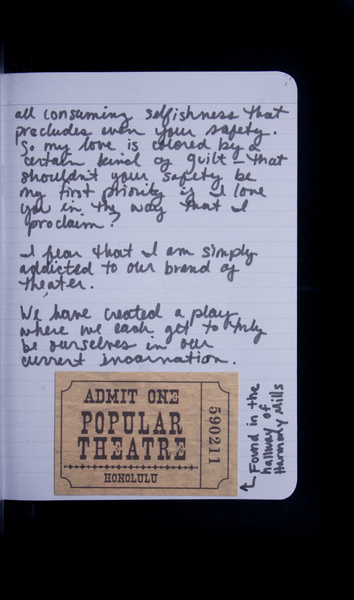 all consuming selfishness that
precludes even your safety.
So my love is colored by a
certain kind of guilt that
shouldn't your safety be
my first priority if I love
you in the way that I
proclaim?
I fear that I am simply
addicted to our brand of
theater.
We have created a play
where we each get to truly
be ourselves in our
current incarnation.
ADMIT ONE
POPULAR
THEATRE
HONOLULU
590211
← Found in the
hallway of
Harmony Mills